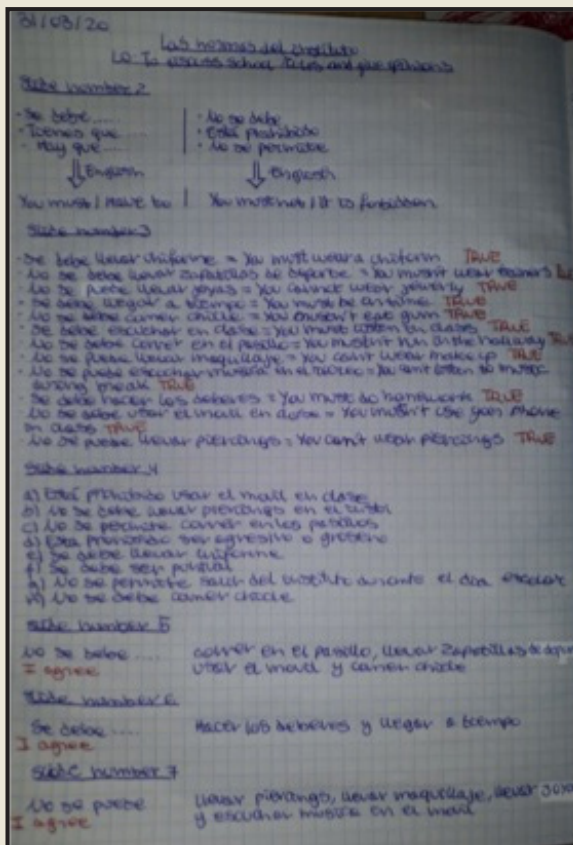 31/03/20
Las normas del instituto
LO: To discuss school rules and give opinions
Slide number 2
· Se debe..... · No se debe
· Tienes que..... · Está prohibido
· Hay que..... · No se permite
English English
You must / Have to You must not / It is forbidden
Slide number 3
· Se debe llevar uniforme = You must wear a uniform TRUE
· No se debe llevar zapatillas de deporte = You mustn't wear trainers
· No se puede llevar joyas = You cannot wear jewerly TRUE
· Se debe llegar a tiempo = You must be on time TRUE
· No se debe comer chicle = You mustn't eat gum TRUE
· Se debe escuchar en clase = You must listen in class TRUE
· No se debe correr en el pasillo = You mustn't run in the hallway
· No se puede llevar maquillaje = You can't wear make up TRUE
· No se puede escuchar música en el recreo = You can't listen to music
during break TRUE
· Se debe hacer los deberes = You must do homework TRUE
· No se debe usar el movil en clase = You mustn't use your phone
in class TRUE
· No se puede llevar piercings = You can't wear piercings TRUE
Slide number 4
a) Está prohibido usar el movil en clase
b) No se debe llevar piercings en el
c) No se permite correr en los pasillos
d) Está prohibido ser agresivo o grosero
e) Se debe llevar uniforme
f) Se debe ser puntual
g) No se permite salir del instituto durante el dia escolar
h) No se debe comer chicle
Slide number 5
No se debe..... correr en el pasillo, llevar zapatillas de
I agree usar el movil y comer chicle
Slide number 6
Se debe..... Hacer los deberes y llegar a tiempo
I agree
Slide number 7
No se puede llevar piercings, llevar maquillaje, llevar
I agree y escuchar musica en el movil